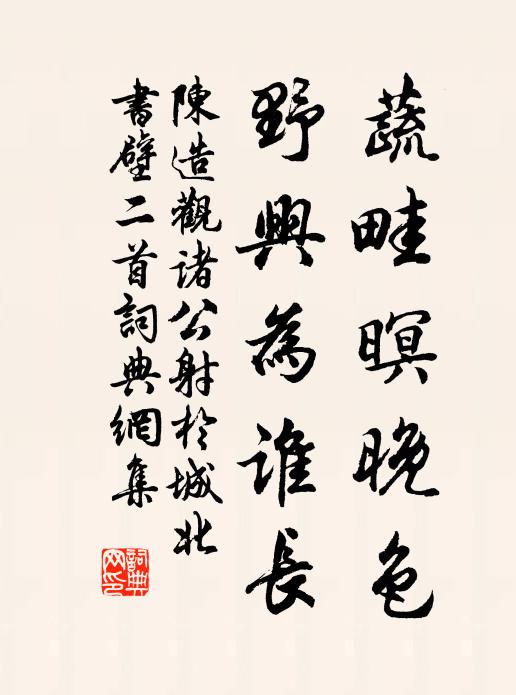 蔬畦暝晚色
野興為誰長
陳造觀諸公射於城北
書壁二首詞典網集
詞典网印